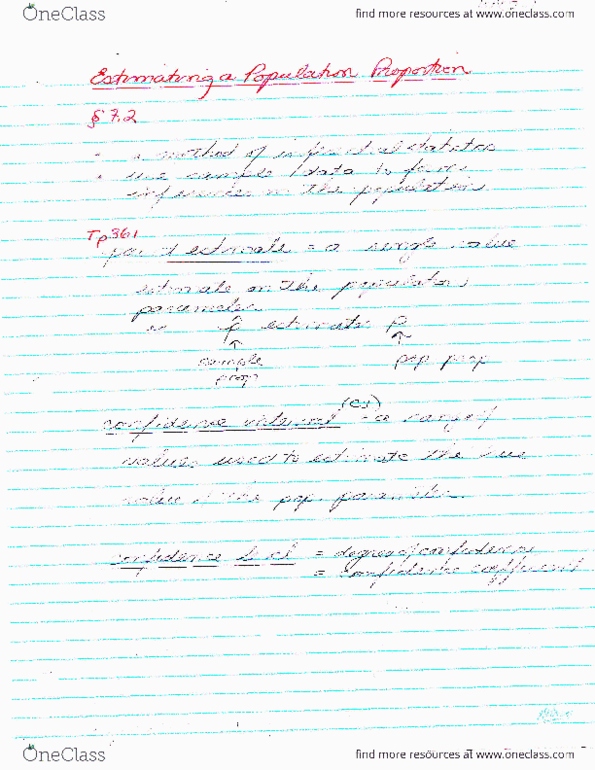 OneClass
find more resources at www.oneclass.com
Estimating a Population Proportion
§ 7.2
• a method of inferential statistics
• use sample data to form
inferences on the population
Tp361
point estimate = a single value
estimate on the population
parameter
p̂ estimates p
↑ ↑
sample pop prop
prop
(CI)
confidence interval = a range of
values used to estimate the true
value of the pop. parameter.
confidence level = degree of confidence
= confidence coefficient
OneClass
find more resources at www.oneclass.com